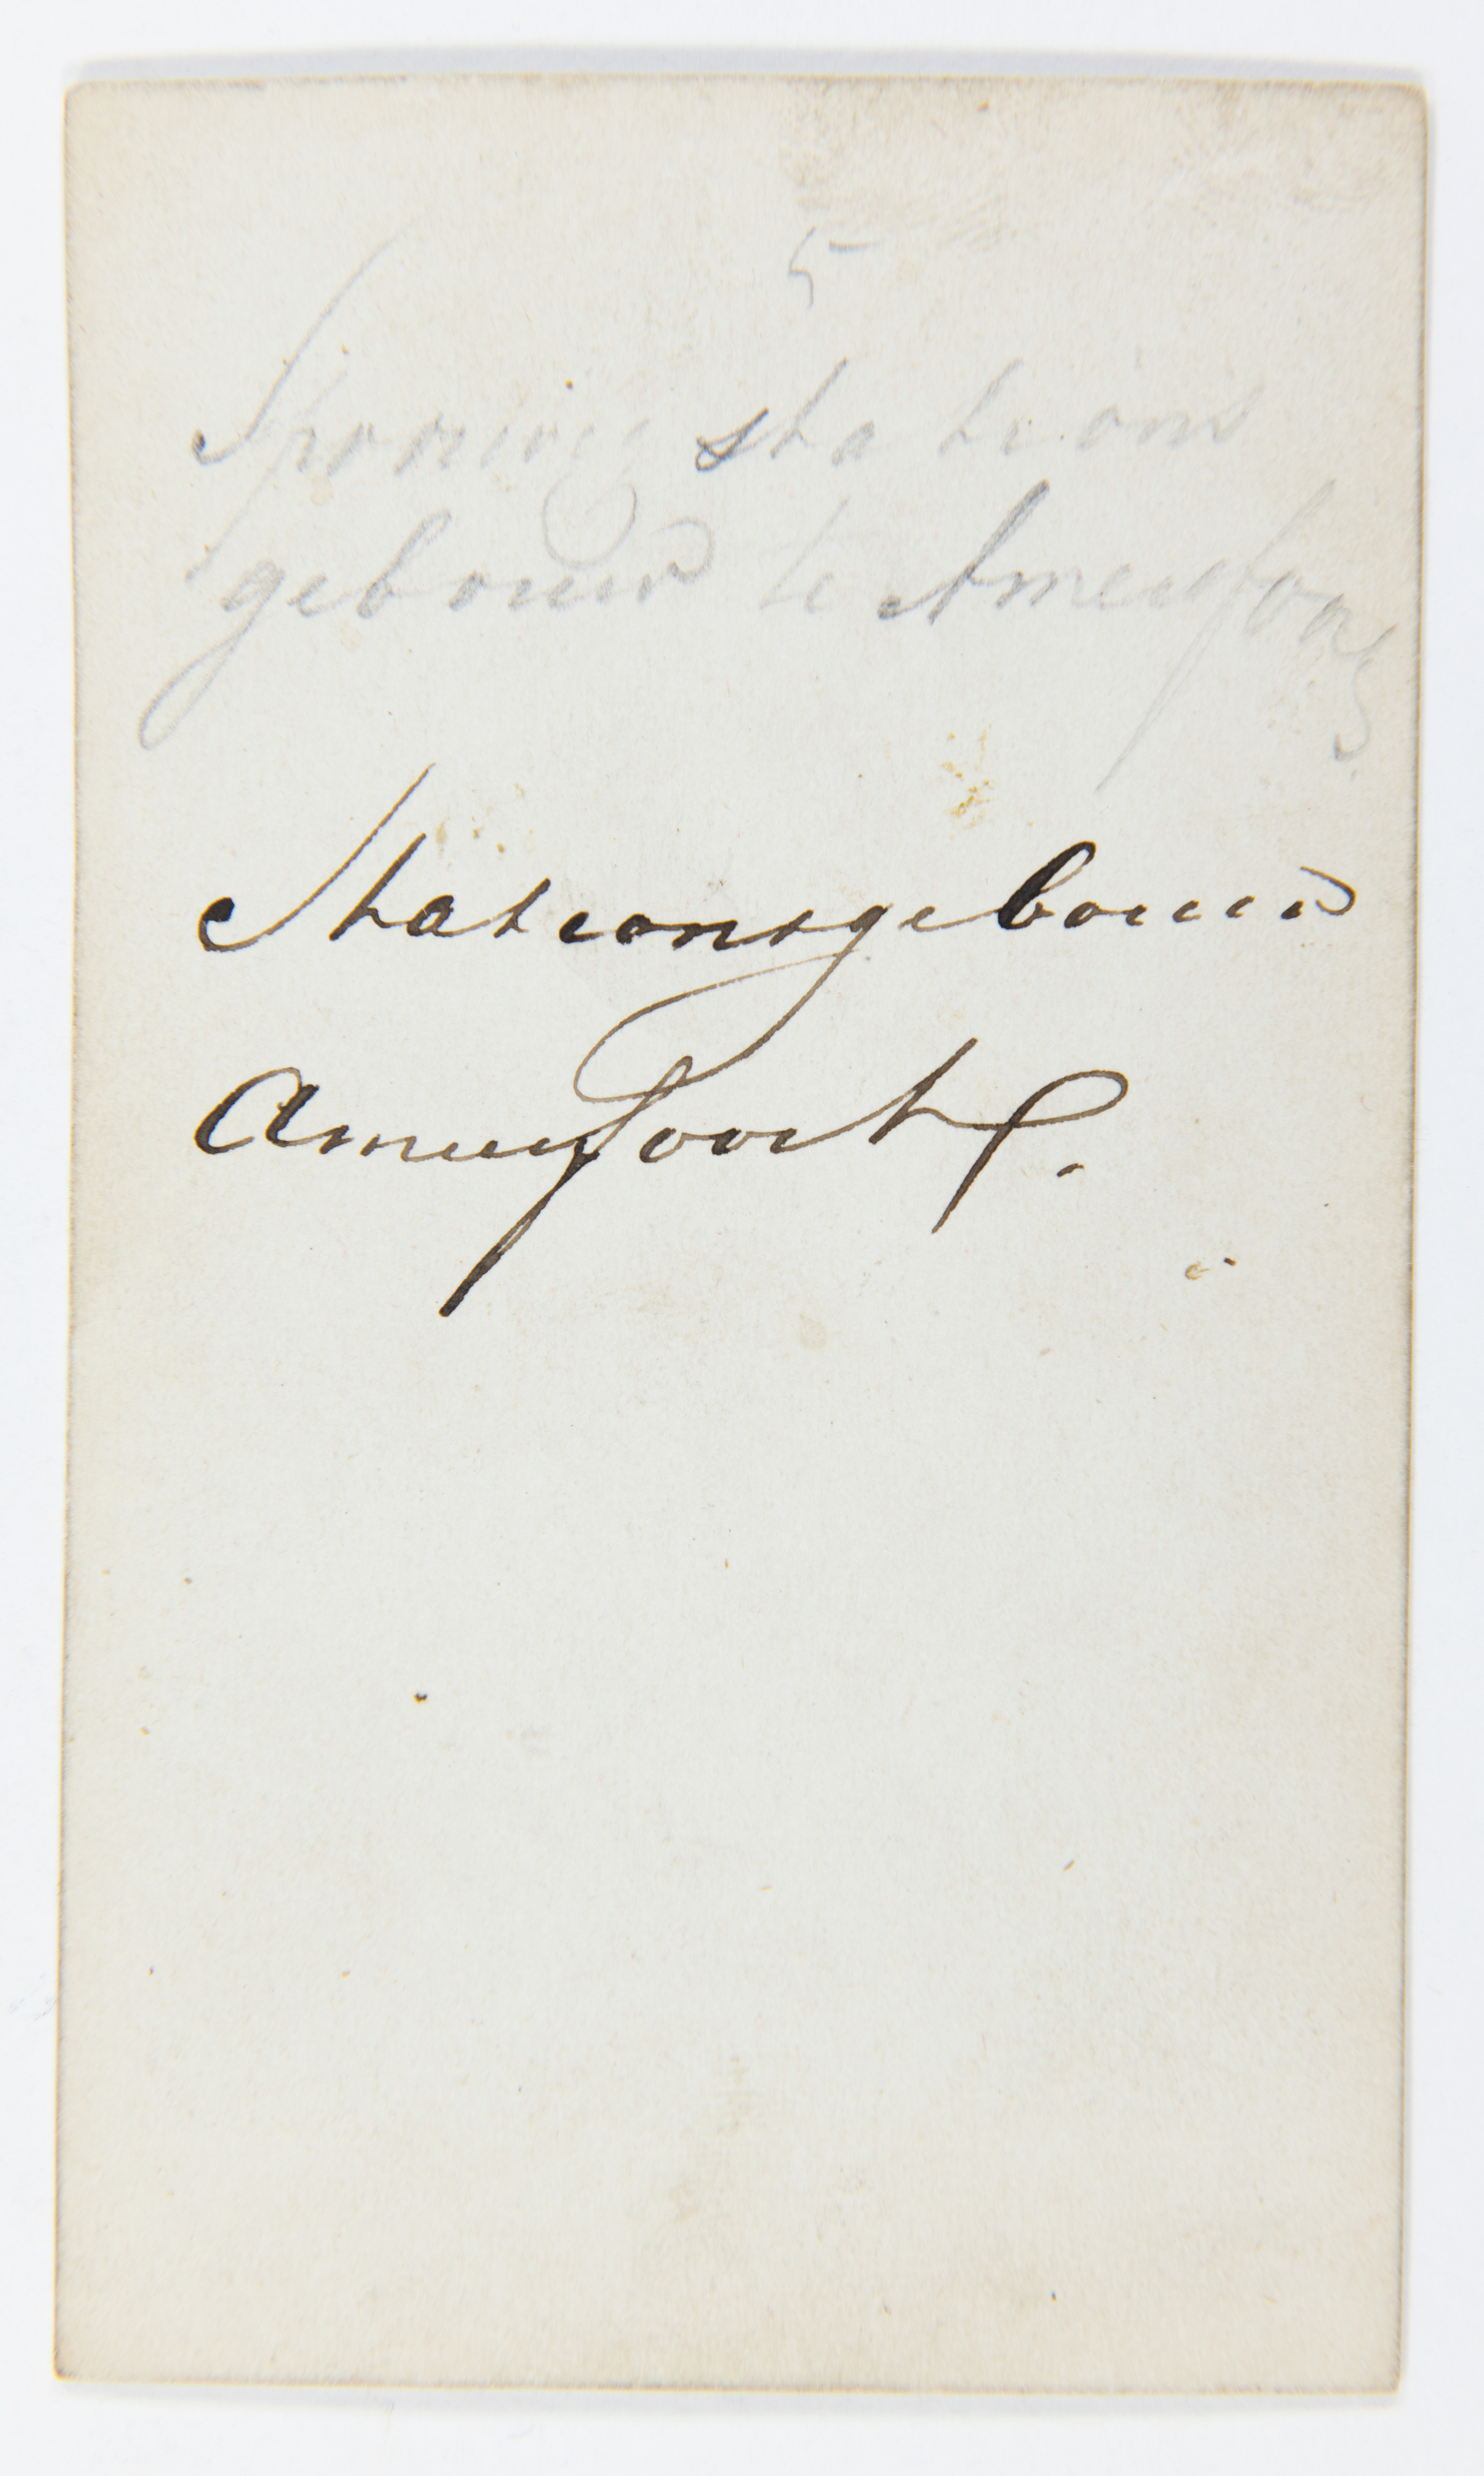 5
Spoorweg stations
gebouw te Amersfoort
Stationsgebouw
Amersfoort.